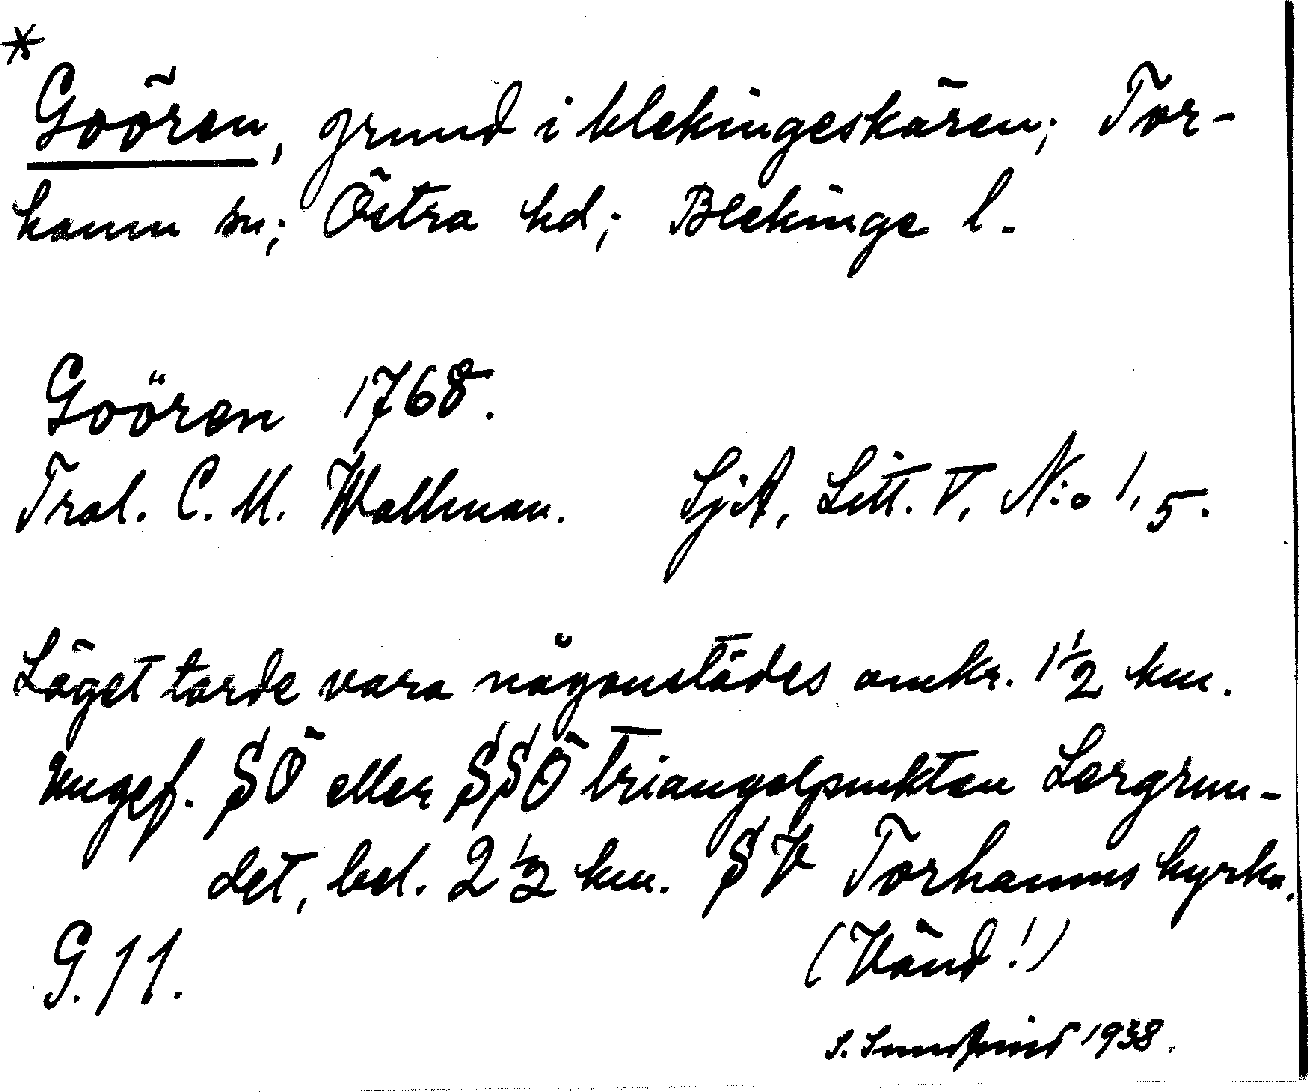 *
Goören, grund i blekingeskären; Tor-
hamn sn; Östra hd; Blekinge l.
Goören 1768.
Tral. C. M. Wallman. SjA, Litt. V, N:o 1, 5.
Läget torde vara någonstädes omkr. 1 1/2 km.
ungef. SÖ eller SSÖ triangelpunkten Lergrun-
det, bel. 2 1/2 km. SV Torhamns kyrka.
G. 11.
(Vänd!)
S. 1938.